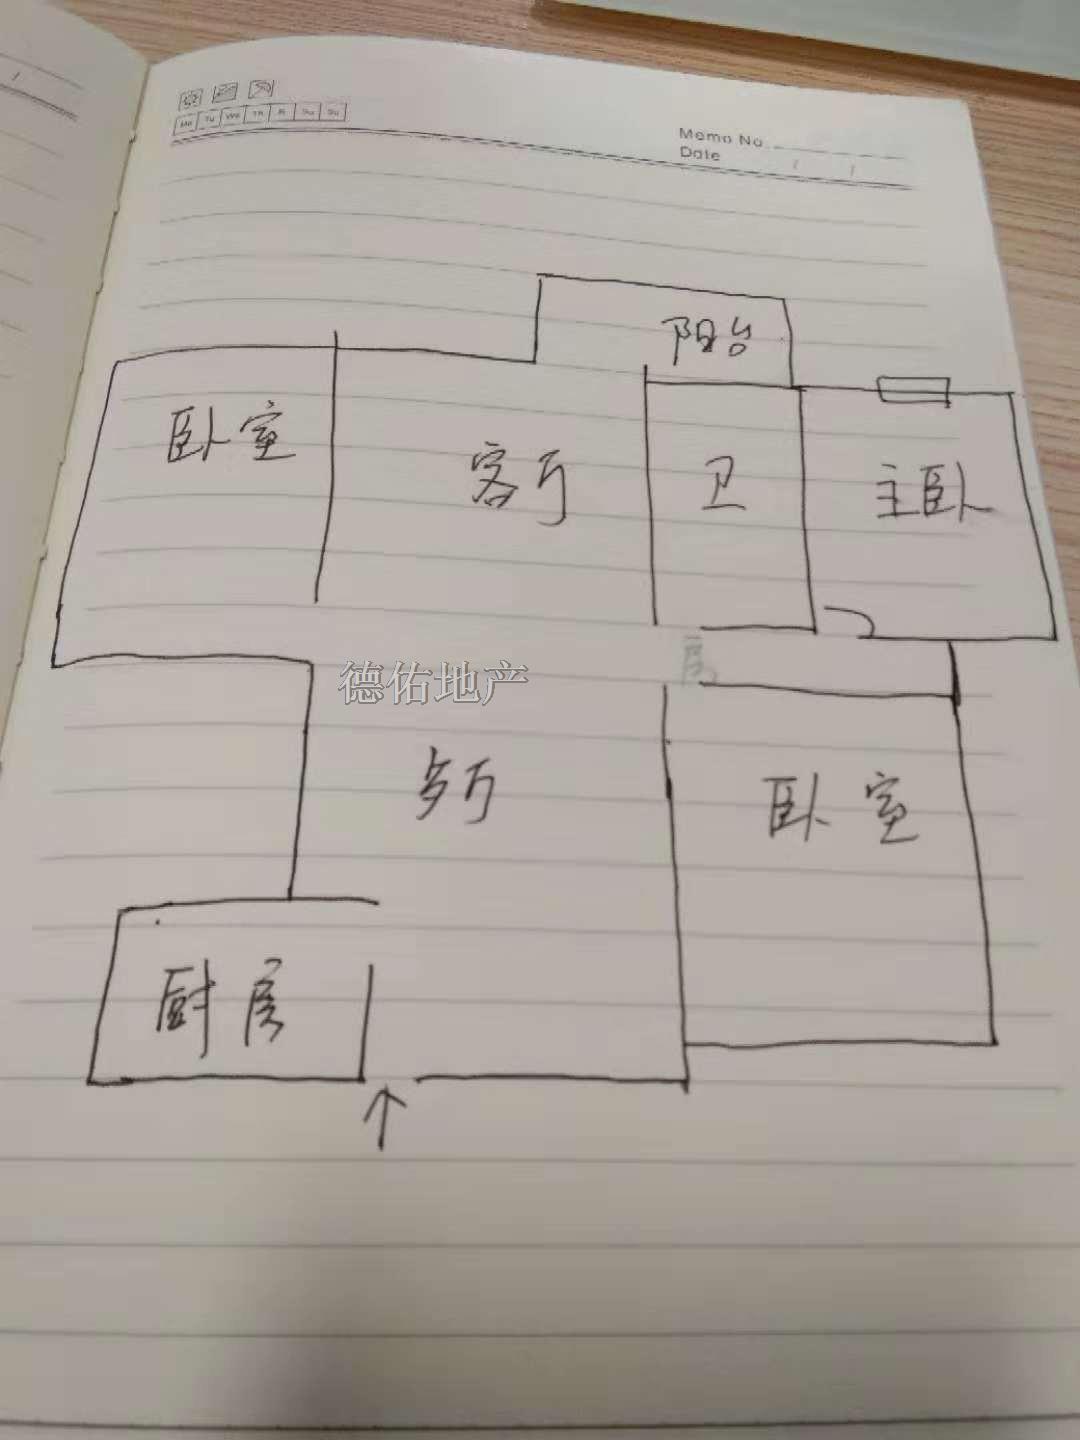 Mo Tu We Th Fr Sa Su
Memo No.
Date / /
阳台
卧室
客厅
卫
主卧
德佑地产
歺厅
卧室
厨房